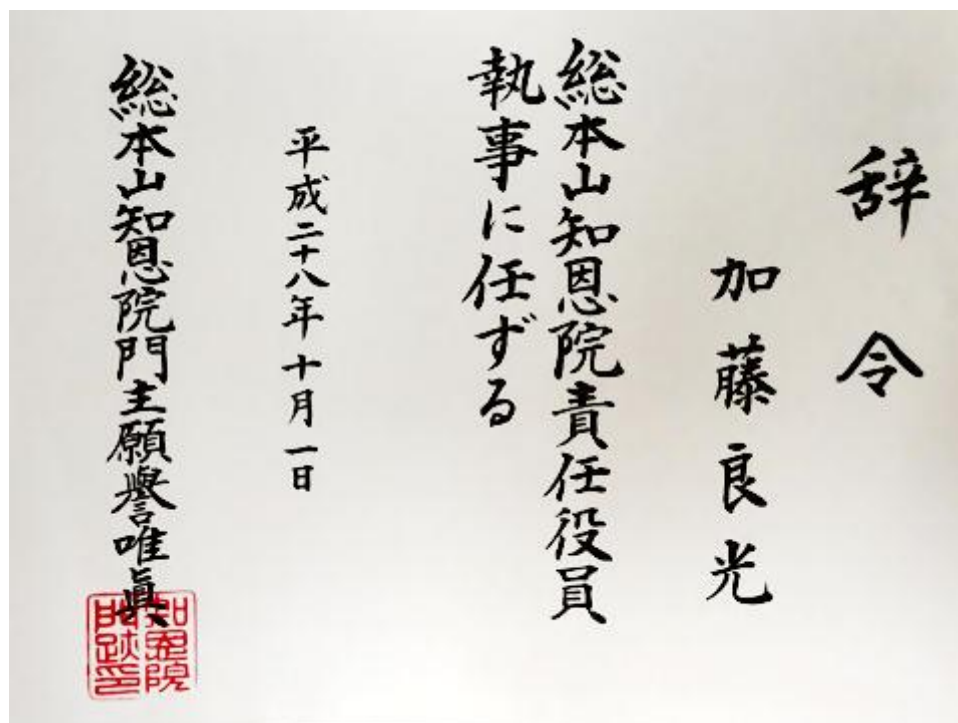 辞令
加藤良光
総本山知恩院責任役員
執事に任ずる
平成二十八年十月一日
総本山知恩院門主願譽唯眞
知恩院
門跡印